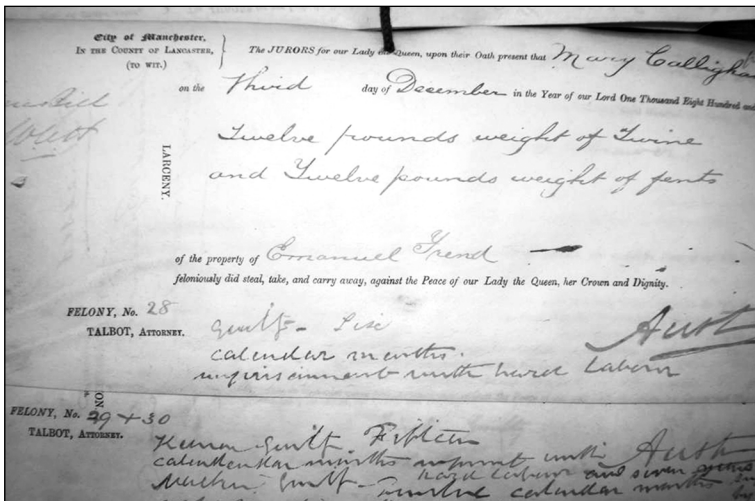 City of Manchester,
IN THE COUNTY OF LANCASTER,
(TO WIT.)
The JURORS for our Lady the Queen, upon their Oath present that Mary Callighan
on the Third day of December in the Year of our Lord One Thousand Eight Hundred and
Twelve pounds weight of Twine
and Twelve pounds weight of fents
LARCENY.
of the property of Emanuel Trend
feloniously did steal, take, and carry away, against the Peace of our Lady the Queen, her Crown and Dignity.
FELONY, No. 28
TALBOT, Attorney.
Guilty - Six
calendar months
imprisonment with hard labour
NO
FELONY, No. 29 + 30
TALBOT, Attorney.
Guilty. Fifteen
calendar months with
Guilty - hard labour and seven
twelve calendar months